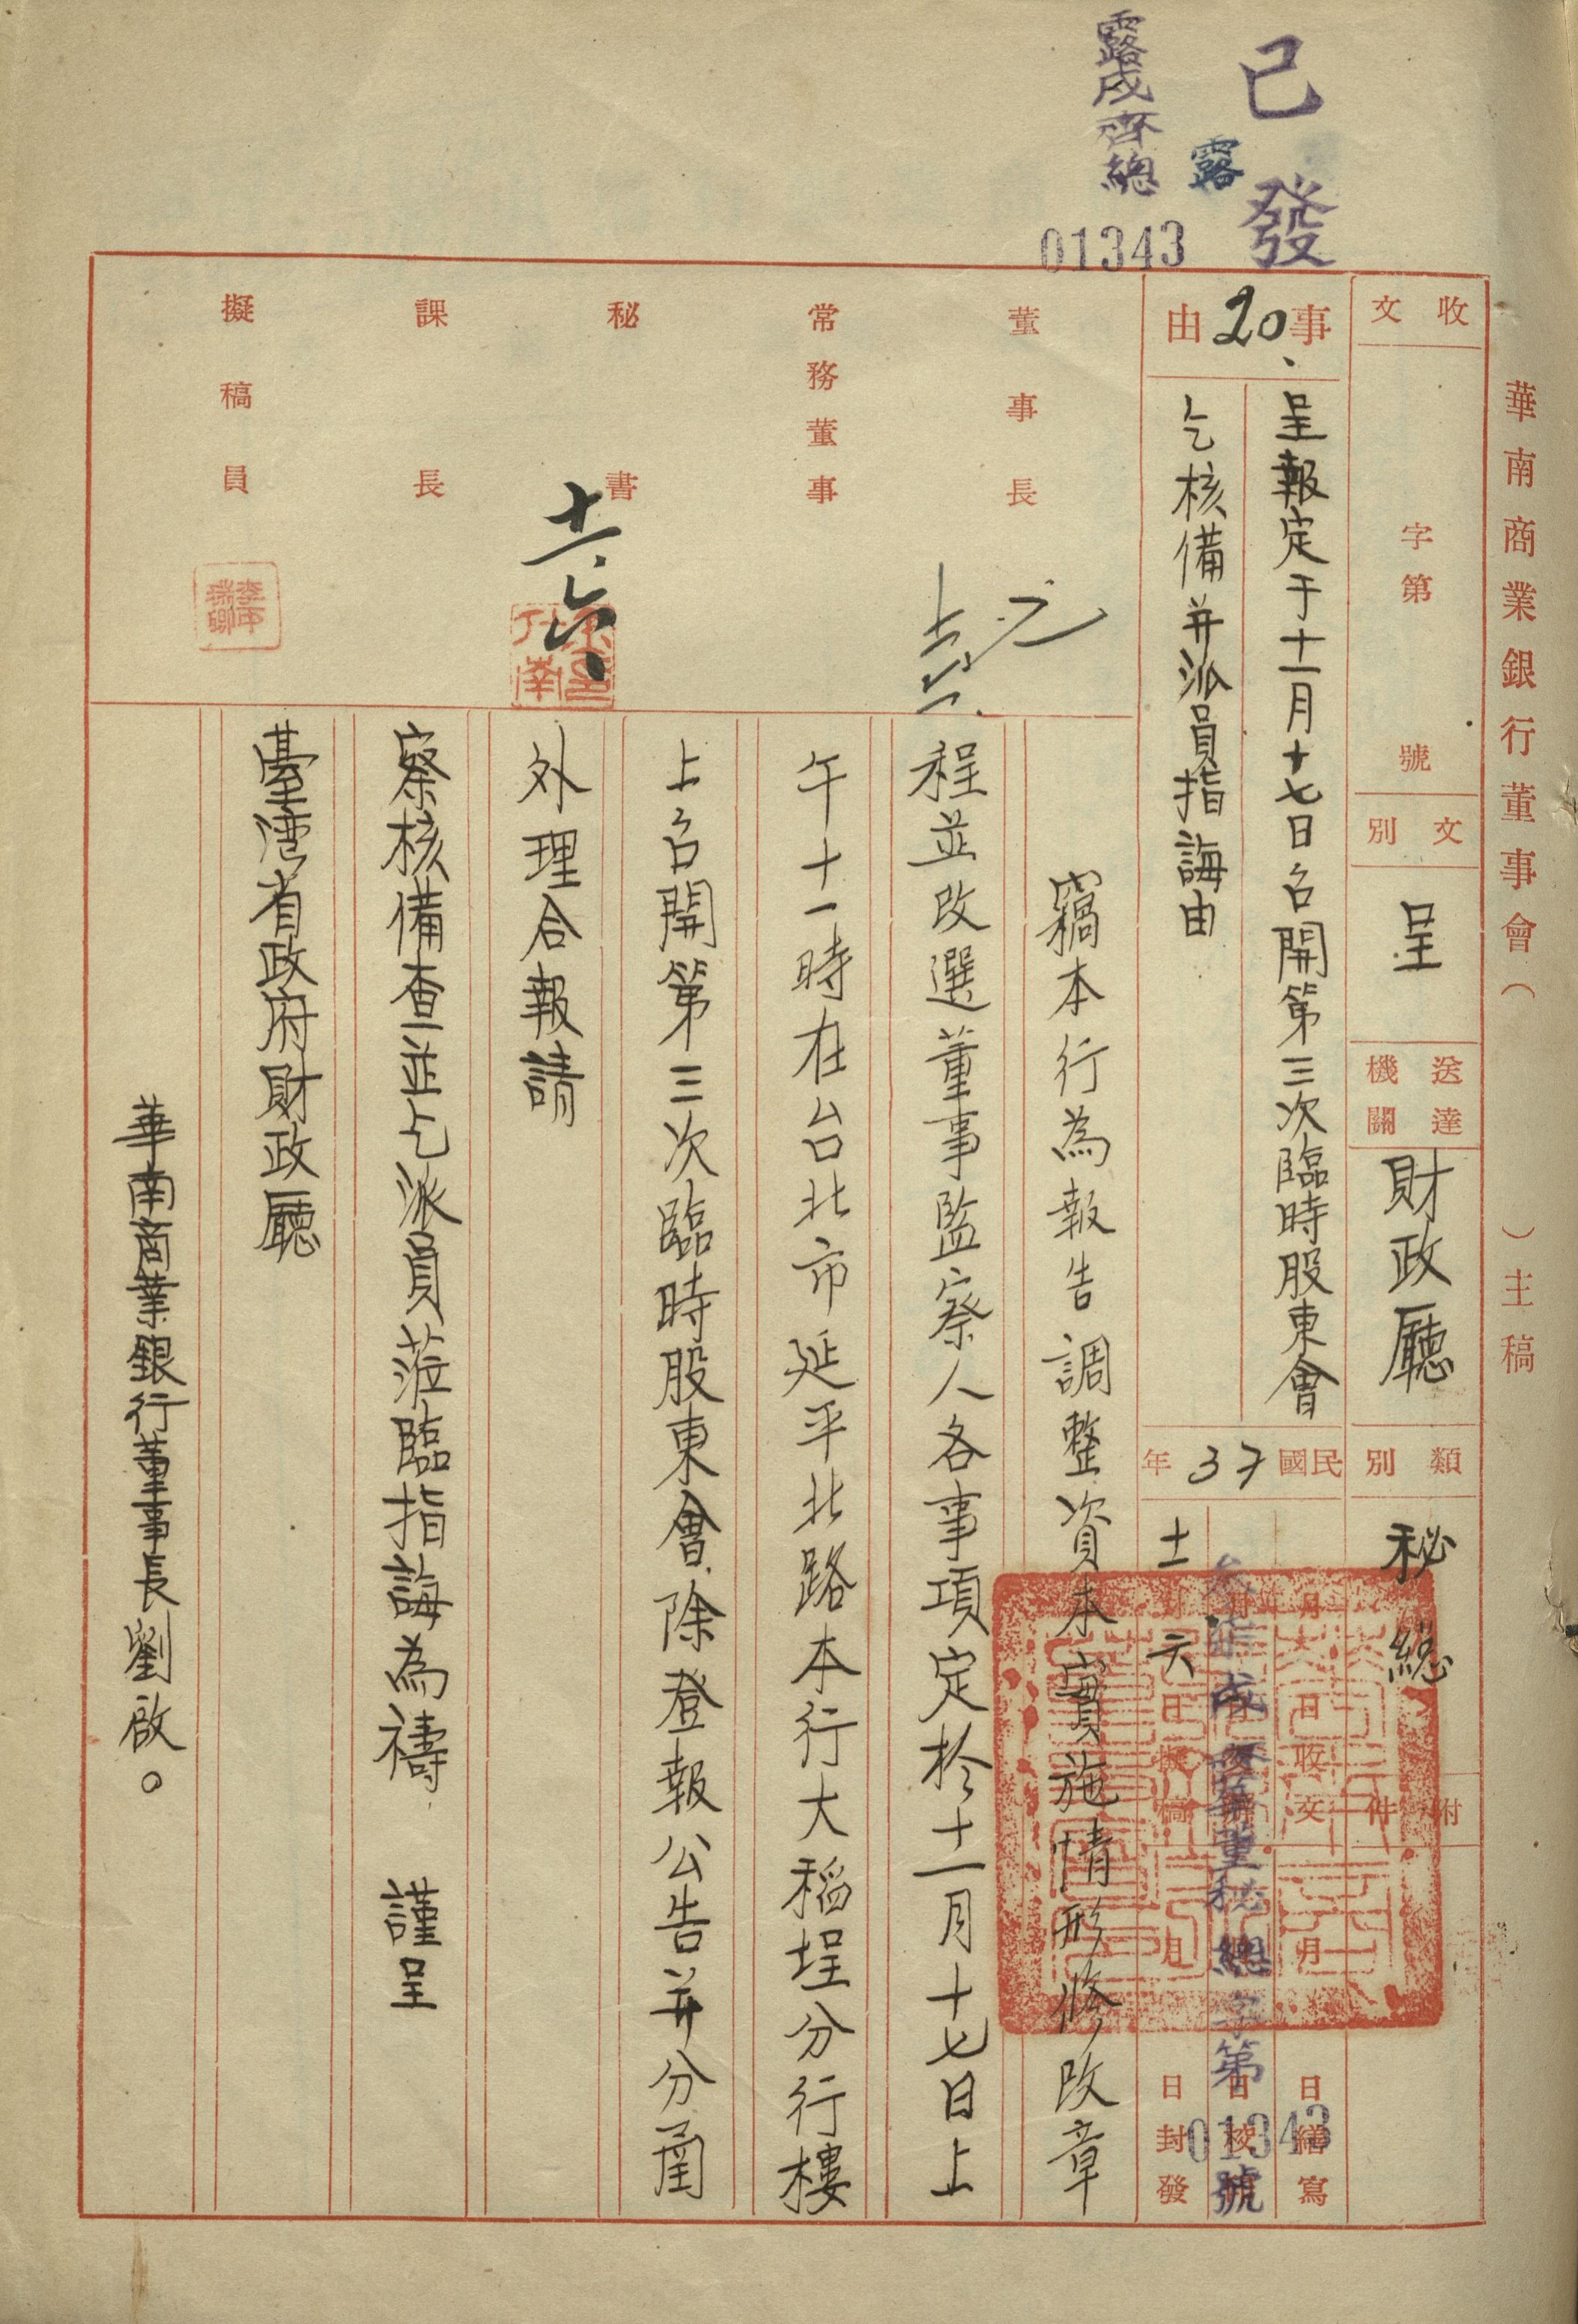 已發
露
露戌齊總
01343
華南商業銀行董事會（　　）主稿
收文　字第　號
文別　呈
送達機關　財政廳
類別　秘總
附件
事由　20、
呈報定于十一月十七日召開第三次臨時股東會
乞核備并派員指誨由
民國37年
月　日收文
月　日繕寫
十一　六　日擬稿
月　日封發
戌齊華董秘總字第01343號
董事長
常務董事
秘書
十一、六、
課長
擬稿員
竊本行為報告調整資本實施情形修改章
程並改選董事監察人各事項定於十一月十七日上
午十一時在台北市延平北路本行大稻埕分行樓
上召開第三次臨時股東會除登報公告并分函
外理合報請
察核備查並乞派員蒞臨指誨為禱　謹呈
臺灣省政府財政廳
華南商業銀行董事長劉啟。